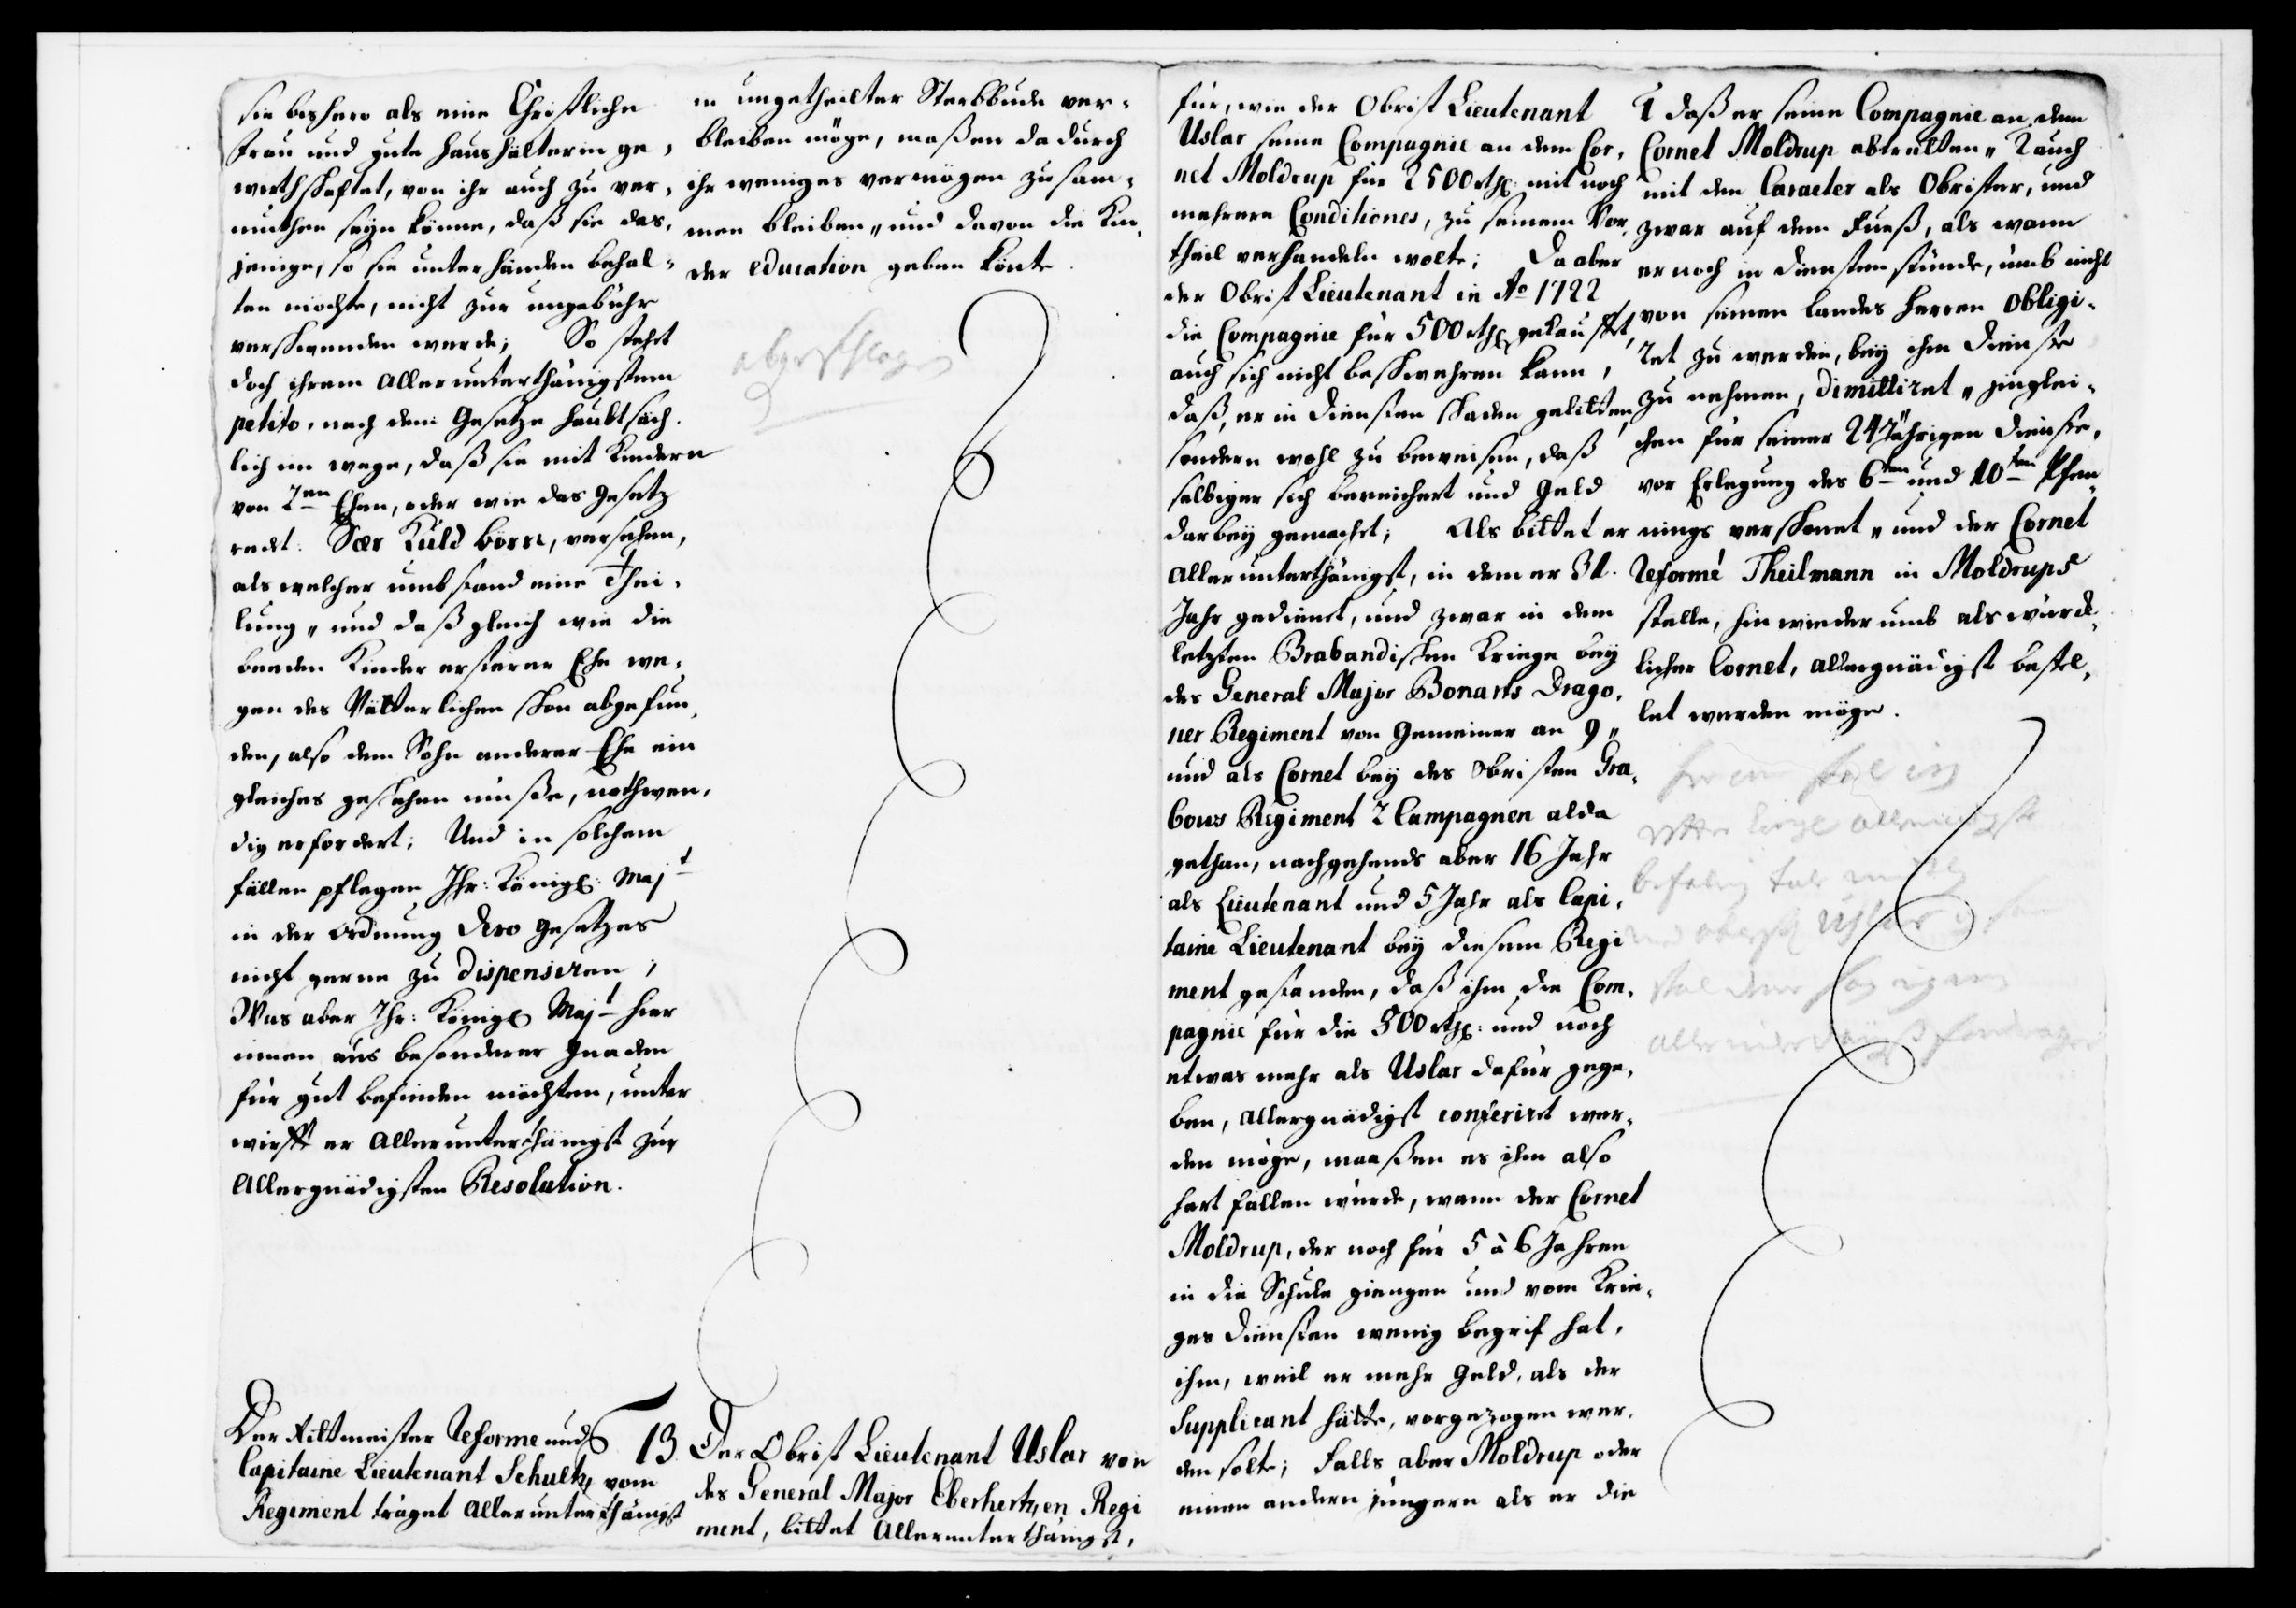 sie bishero als eine Christliche
Frau und gute Haushälterin ge,
wirthschaftet, von ihr auch zu ver,
muthen seyn könne, daß sie das,
jenige, so sie unter händen behal,
ten möchte, nicht zur ungebühr
verschwenden werde; So stehet
doch ihrem allerunterthänigstem
petito, nach dem Gesetze haubtsäch,
lich im wege, daß sie mit Kindern
von 2en Ehen, oder wie das Gesetz
redet: Sær Kuld börn, versehen,
als welcher umbstand eine Thei,
lung „ und daß gleich wie die
beeden Kinder ersterer Ehe we,
gen des Vätterlichen schon abgefun,
den, also dem Sohn anderer Ehe ein
gleiches geschehen müße, nothwen,
dig erfordert; Und in solchem
fällen pflegen Ihr: Königl: Majt
in der Ordnung Dero Gesetzes
nicht gerne zu dispensiren;
Was aber Ihr: Königl Majt hier
innen aus besonderer Gnaden
für gut befinden möchten, unter
wirfft er allerunterthänigst zur
Allergnädigsten Resolution.
in ungetheilter Sterbbude ver,
bleiben möge, maßen dadurch
ihr weniges vermögen zusam,
men bleiben „ und davon die Kin,
der education geben könte.
abgeschlagen
Der Rittmeister Reforme und
Capitaine Lieutenant Schultz vom
Regiment träget allerunterthänigst
13.
Der Obrist Lieutenant Uslar von
des General Major Eberhertzen Regi
ment, bittet Allerunterthänigst,
für, wie der Obrist Lieutenant
Uslar seine Compagnie an dem Cor,
net Moldrup für 2500 rthl: mit noch
mehrern Conditiones, zu seinem Vor,
theil verhandeln wolte; Da aber
der Obrist Lieutenant in Ao 1722
die Compagnie für 500 rthl gekaufft,
auch sich nicht beschwehren kann,
daß, er in diensten schaden gelitten,
sondern wohl zu beweisen, daß
selbiger sich bereichert und Geld
darbey gemacht; Als bittet er
allerunterthänigst, in dem er 31.
Jahr gedienet, und zwar in dem
letzten Brabandischen Kriege bey
des General Major Bonarts Drago,
ner Regiment von Gemeiner an 9 „
und als Cornet bey des Obristen Gra,
bows Regiment 2 Campagnen alda
gethan, nachgehends aber 16 Jahr
als Lieutenant und 5 Jahr als Capi,
taine Lieutenant bey diesem Regi
ment gestanden, daß ihm die Com,
pagnie für die 500 rthl: und noch
etwas mehr als Uslar dafür gege,
ben, allergnädigst conferiret wer,
den möge, maaßen es ihm also
hart fallen würde, wann der Cornet
Moldrup, der noch für 5 à 6 Jahren
in die Schule giengen und vom Krie,
ges diensten wenig begrif hat,
ihm, weil er mehr Geld, als der
Supplicant hätte, vorgezogen wer,
den solte; Falls aber Moldrup oder
einen andern jüngern als er die
1 daß er seine Compagnie an dem
Cornet Moldrup abtretten „ 2 auch
mit den Caracter als Obrister, und
zwar auf dem Fueß, als wann
er noch in diensten stünde, umb nicht
von seinen Landes Herren obligi,
ret zu werden, bey ihm Dienste
zu nehmen, dimittiret „ jinglei,
chen für seiner 24 Jährigen dienste,
vor Erlegung des 6ten und 10ten Pfen,
nings verschonet „ und der Cornet
Reformé Theilmann in Moldrups
stelle, hinwiederumb als würck,
licher Cornet, allergnädigst bestel,
let werden möge.